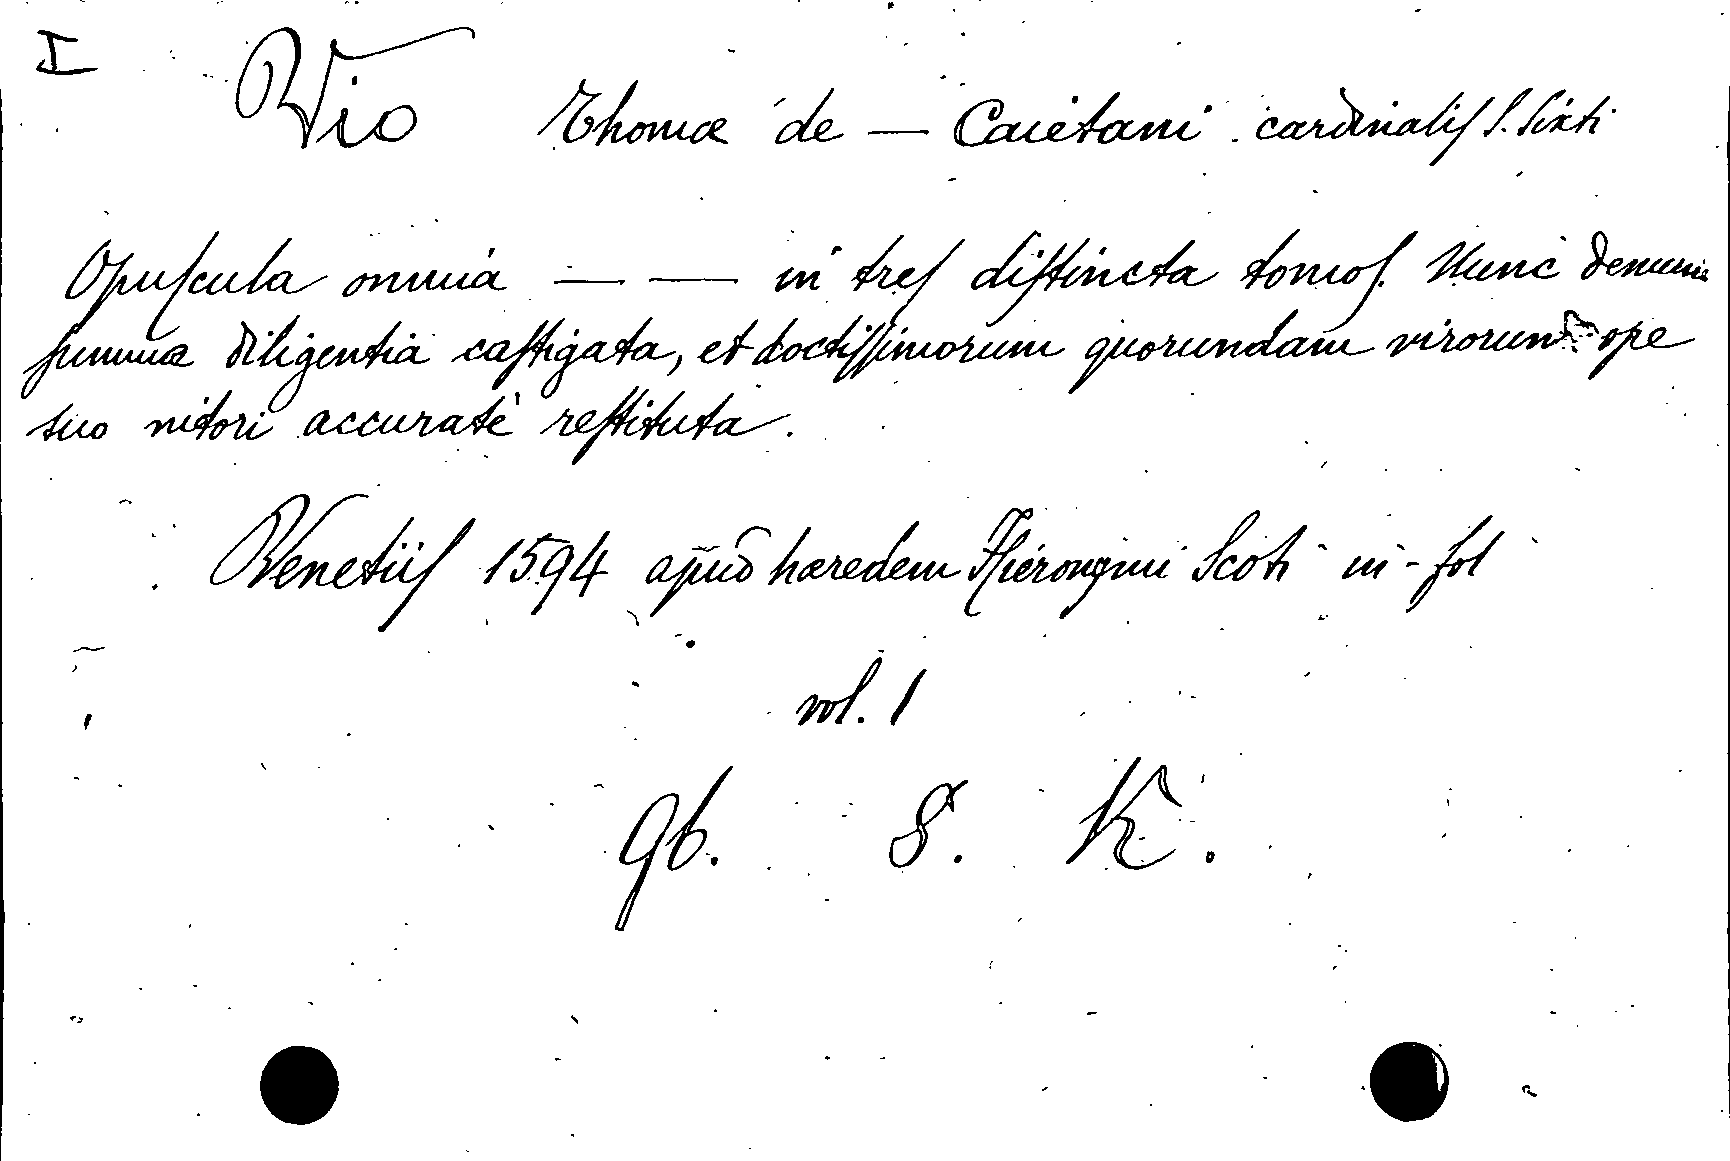 I
Vio Thomæ de — Caietani cardinaliſ S. Sixti
Opuſcula omnia — — in treſ diſtincta tomoſ. Nunc denum
summa diligentia caſtigata, et doctiſſimorum quorundam virorum ope
suo nitori accuratè reſtituta.
Venetiiſ 1594 apud hæredem Hieronymi Scoti in-fol
vol. 1
96. 8. K.